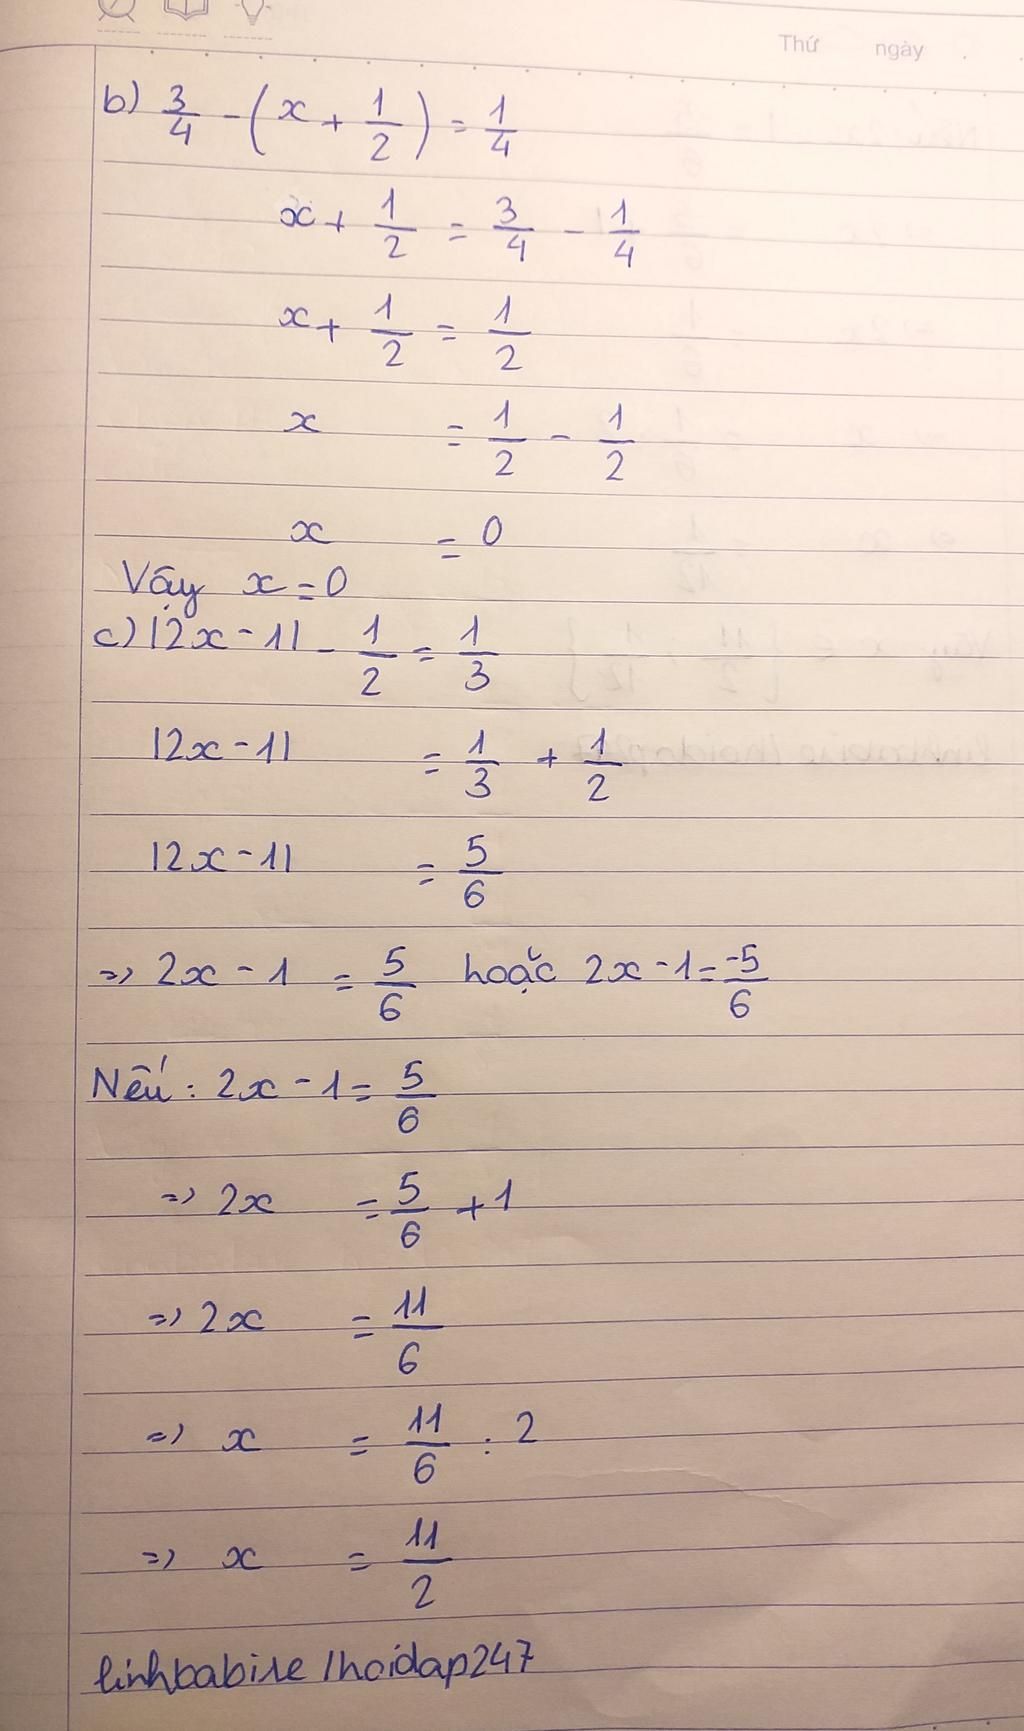 Thứ ngày
b) 3/4 - (x + 1/2) = 1/4
x + 1/2 = 3/4 - 1/4
x + 1/2 = 1/2
x = 1/2 - 1/2
x = 0
Vậy x = 0
c) |2x - 1| - 1/2 = 1/3
|2x - 1| = 1/3 + 1/2
|2x - 1| = 5/6
=> 2x - 1 = 5/6 hoặc 2x - 1 = -5/6
Nếu : 2x - 1 = 5/6
=> 2x = 5/6 + 1
=> 2x = 11/6
=> x = 11/6 : 2
=> x = 11/2
linhbabise /hoidap247